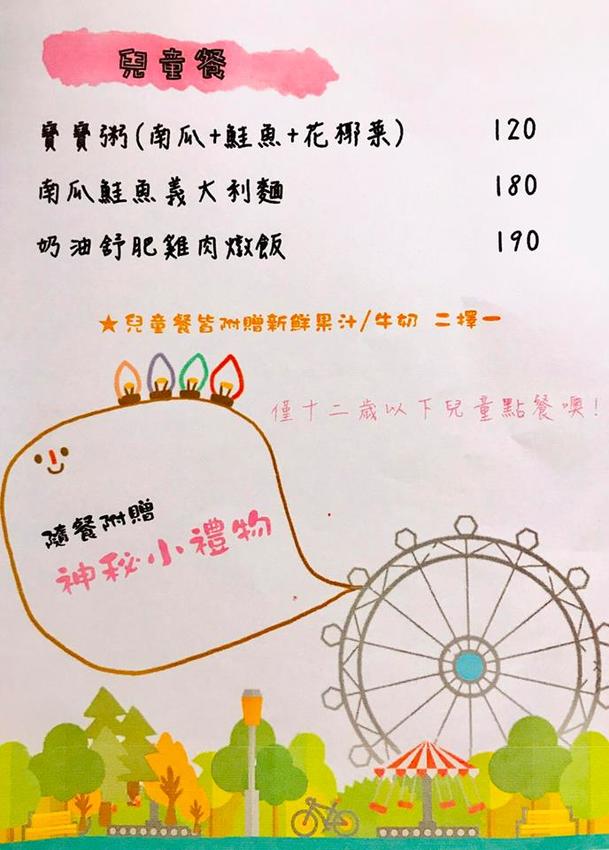 兒童餐
寶寶粥(南瓜+鮭魚+花椰菜) 120
南瓜鮭魚義大利麵 180
奶油舒肥雞肉燉飯 190
★兒童餐皆附贈新鮮果汁/牛奶 二擇一
僅十二歲以下兒童點餐噢!
隨餐附贈
神秘小禮物